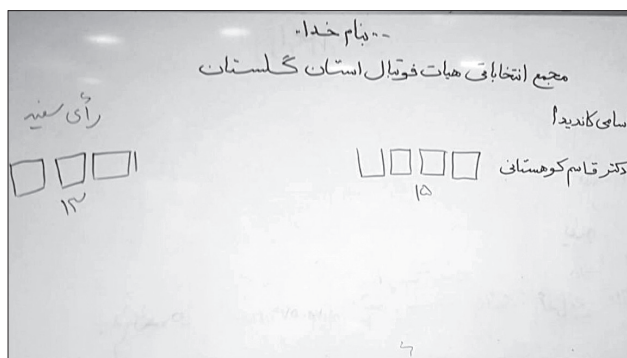 بنام خدا
مجمع انتخاباتی هیات فوتبال استان گلستان
سامی کاندیدا
رأی سفید
دکتر قاسم کوهستانی
۱۵
۱۳